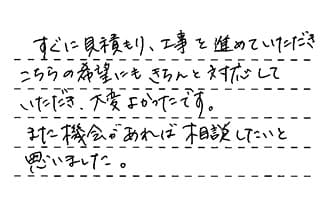 すぐに見積もり、工事を進めていただき
こちらの希望にもきちんと対応して
いただき、大変よかったです。
また機会があれば相談したいと
思いました。